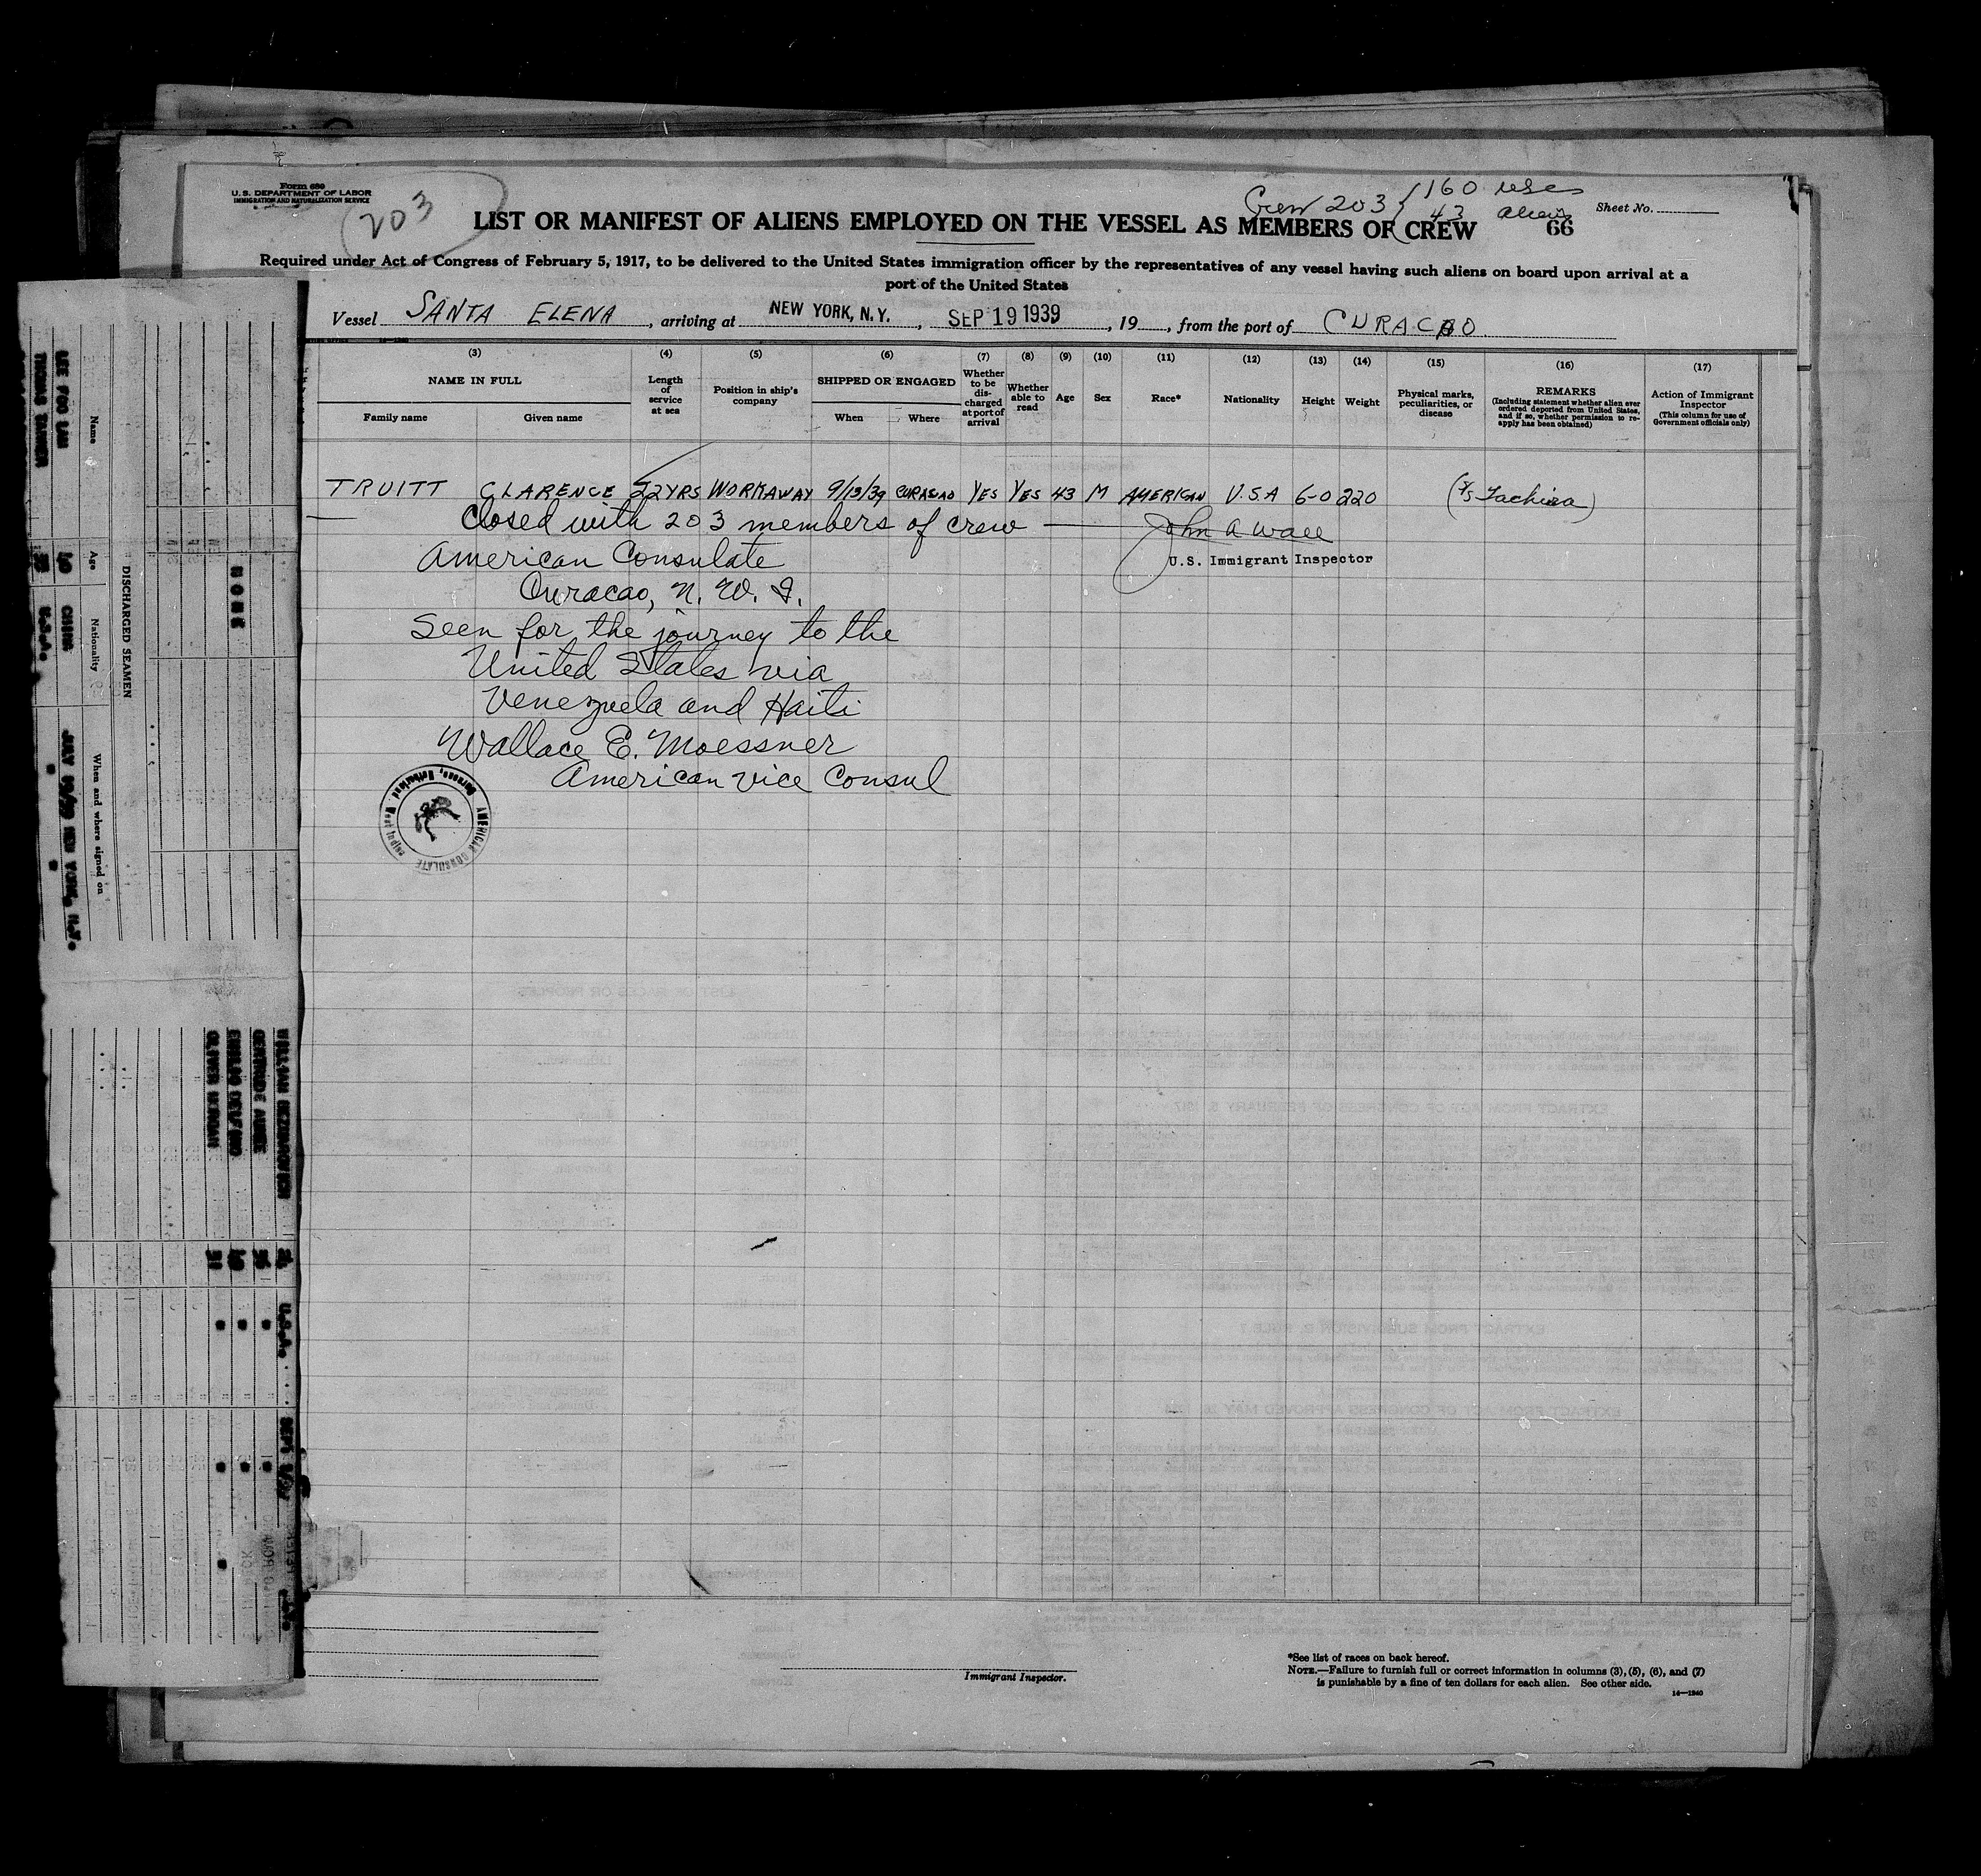 Form 680
U. S. DEPARTMENT OF LABOR
IMMIGRATION AND NATURALIZATION SERVICE
203
Crew 203 { 160 uscs
43 aliens
Sheet No.
66
LIST OR MANIFEST OF ALIENS EMPLOYED ON THE VESSEL AS MEMBERS OF CREW
Required under Act of Congress of February 5, 1917, to be delivered to the United States immigration officer by the representatives of any vessel having such aliens on board upon arrival at a
port of the United States
Vessel SANTA ELENA, arriving at NEW YORK, N. Y., SEP 19 1939, 19, from the port of CURACAO
(3) (4) (5) (6) (7) (8) (9) (10) (11) (12) (13) (14) (15) (16) (17)
NAME IN FULL
Family name
Given name
Length of service at sea
Position in ship's company
SHIPPED OR ENGAGED
When
Where
Whether to be discharged at port of arrival
Whether able to read
Age
Sex
Race*
Nationality
Height
Weight
Physical marks, peculiarities, or disease
REMARKS
(Including statement whether alien ever ordered deported from United States, and if so, whether permission to reapply has been obtained)
Action of Immigrant Inspector
(This column for use of Government officials only)
TRUITT CLARENCE 22YRS WORKAWAY 9/13/39 CURACAO YES YES 43 M AMERICAN U.S.A 6-0 220 (S/S Tachira)
Closed with 203 members of crew
John A Wall
U.S. Immigrant Inspector
American Consulate
Curacao, N. W. I.
Seen for the journey to the
United States via
Venezuela and Haiti
Wallace E. Moessner
American Vice Consul
AMERICAN CONSULATE
Curacao, Netherlands West Indies
Immigrant Inspector.
*See list of races on back hereof.
NOTE.—Failure to furnish full or correct information in columns (3), (5), (6), and (7)
is punishable by a fine of ten dollars for each alien. See other side.
14—1240
DISCHARGED SEAMEN
Name
Age
Nationality
When and where signed on
LEE FOO LAN 40 CHINA
THOMAS TANNER
U.S.A.
NONE
GERTRUDE
OLIVER MORGAN 31
U.S.A.